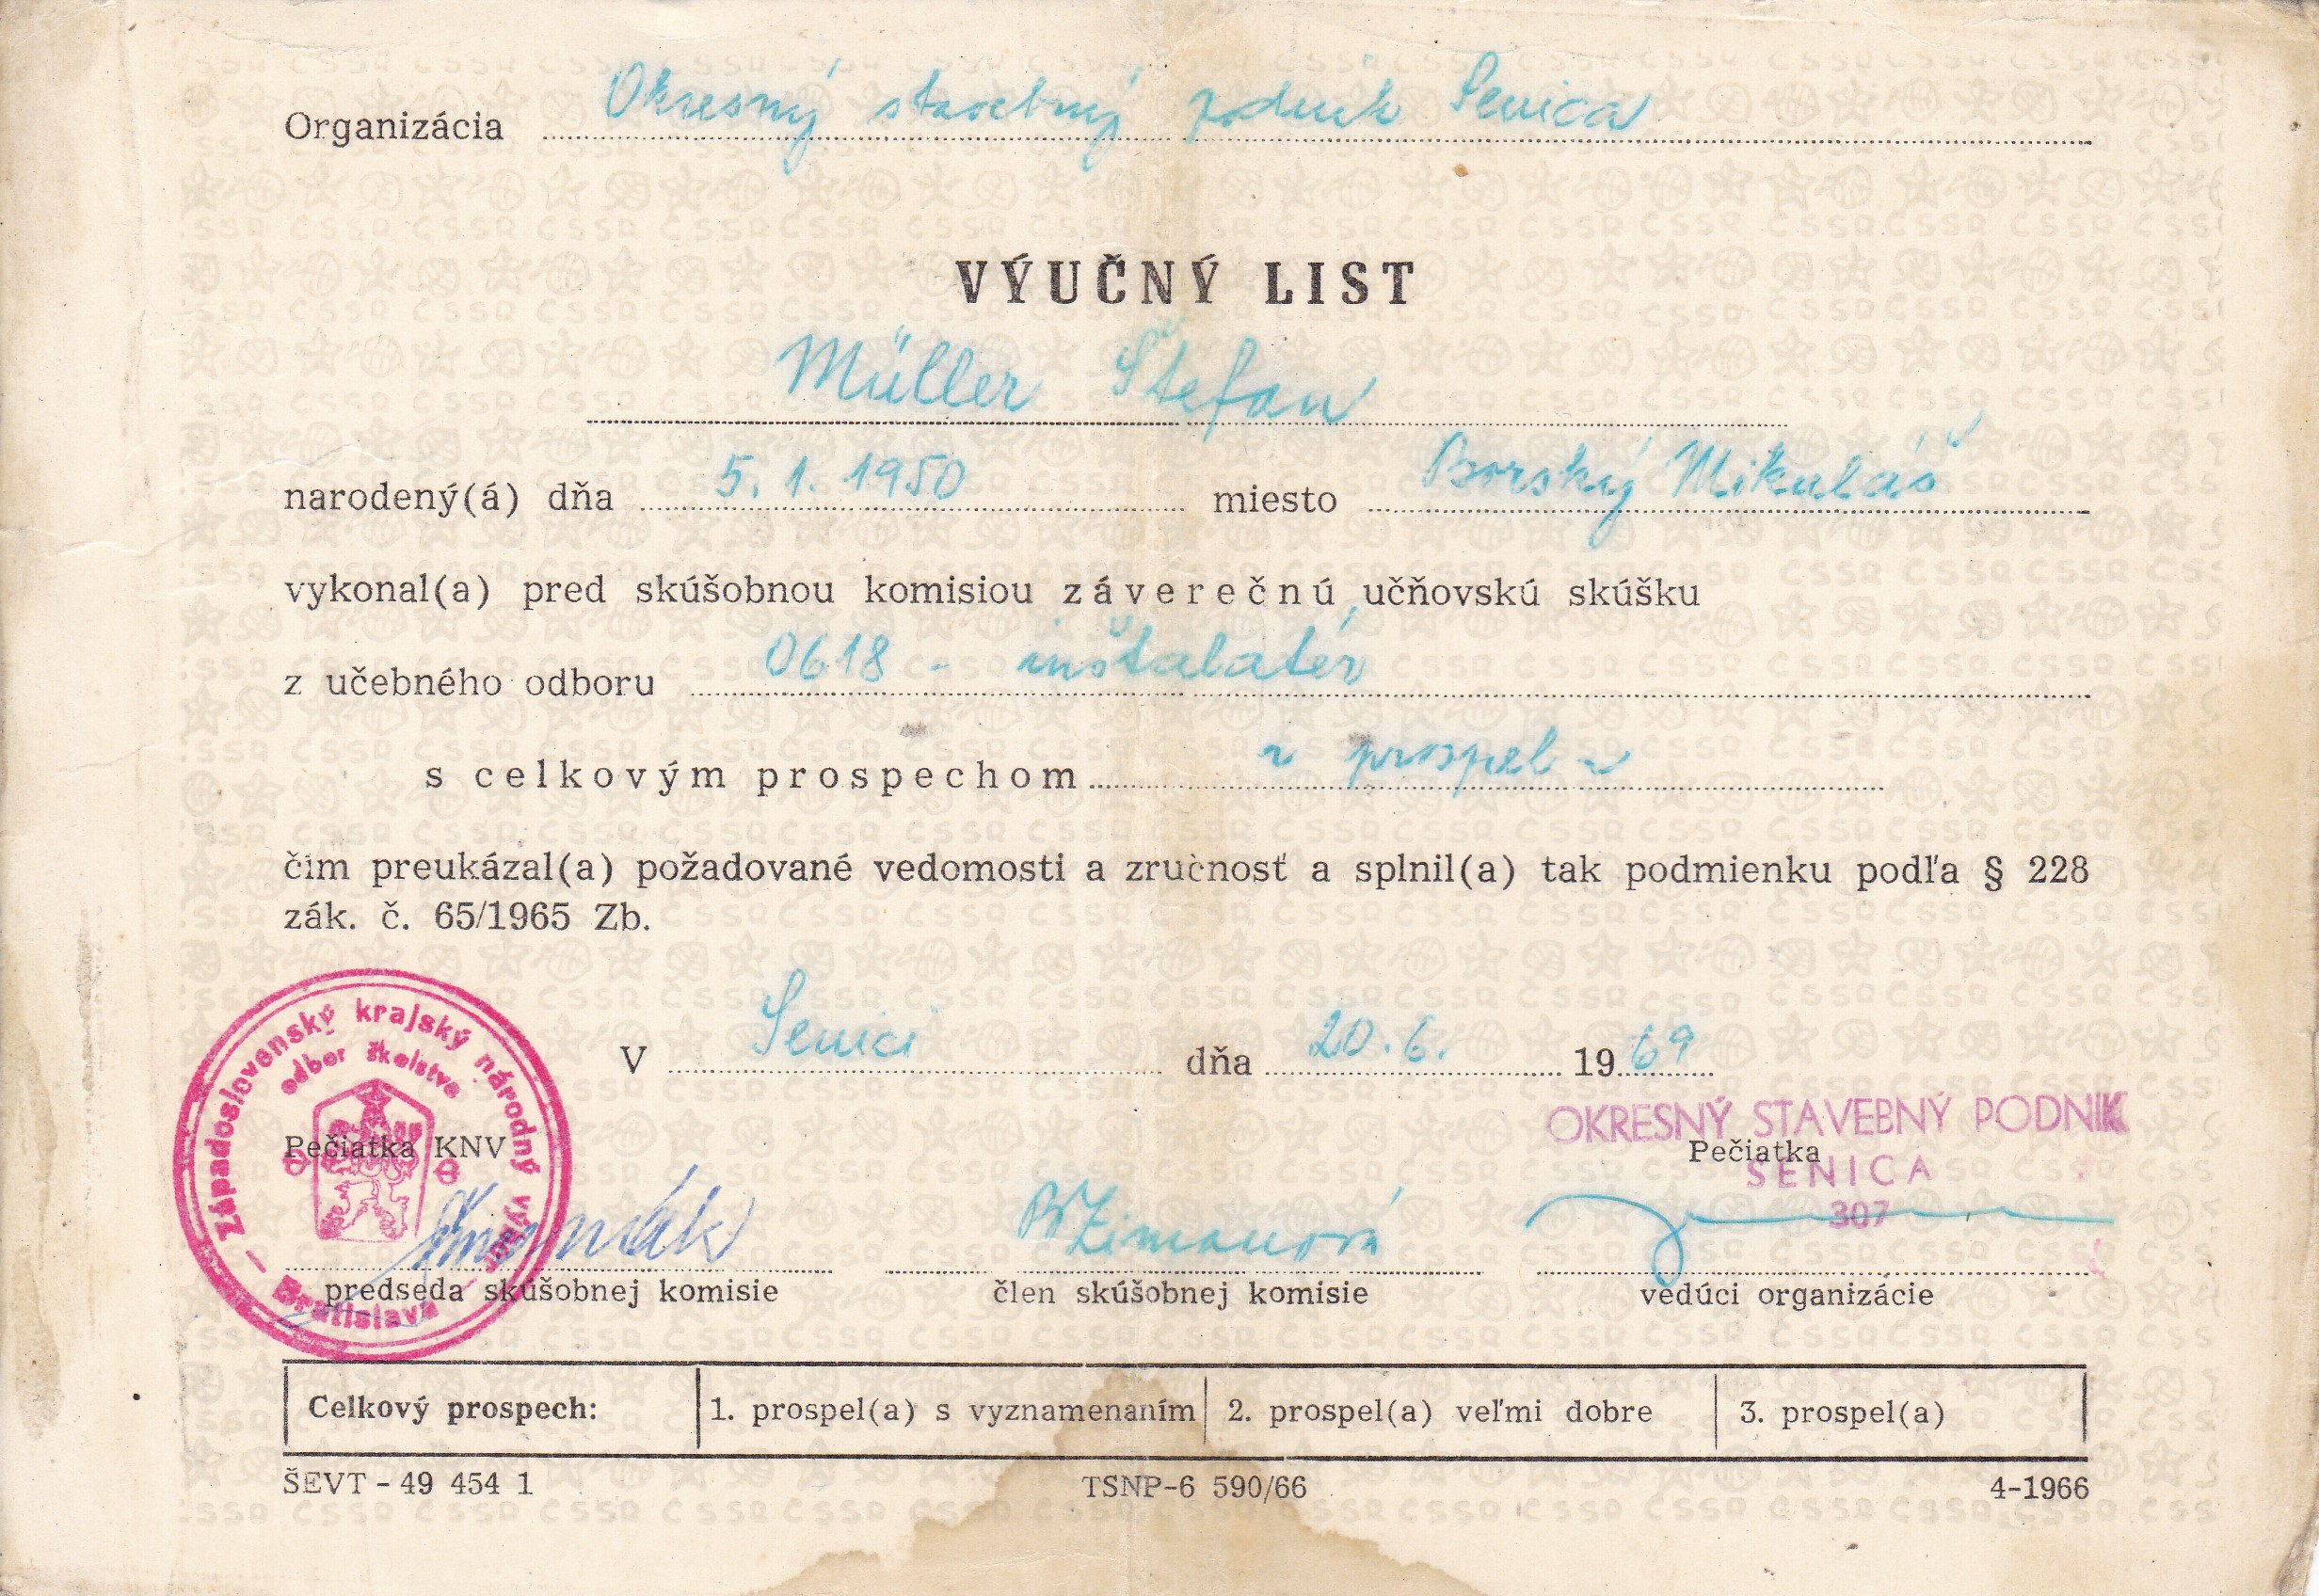 Organizácia Okresný stavebný podnik Senica
VÝUČNÝ LIST
Müller Štefan
narodený(á) dňa 5. 1. 1950 miesto Borský Mikuláš
vykonal(a) pred skúšobnou komisiou záverečnú učňovskú skúšku
z učebného odboru 0618 - inštalatér
s celkovým prospechom ~ prospel ~
čím preukázal(a) požadované vedomosti a zručnosť a splnil(a) tak podmienku podľa § 228
zák. č. 65/1965 Zb.
V Senici dňa 20. 6. 1969
Západoslovenský krajský národný výbor
odbor školstva
Bratislava
Pečiatka KNV
OKRESNÝ STAVEBNÝ PODNIK
Pečiatka
SENICA
307
predseda skúšobnej komisie člen skúšobnej komisie vedúci organizácie
Celkový prospech: 1. prospel(a) s vyznamenaním 2. prospel(a) veľmi dobre 3. prospel(a)
ŠEVT - 49 454 1 TSNP-6 590/66 4-1966